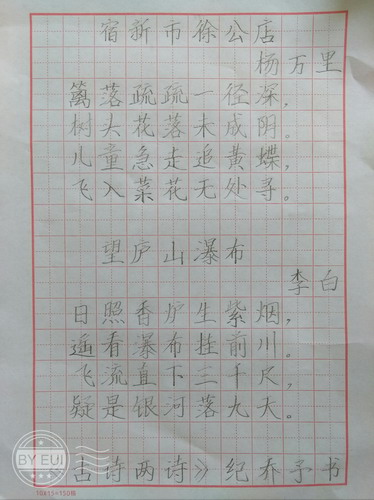 宿新市徐公店
杨万里
篱落疏疏一径深，
树头花落未成阴。
儿童急走追黄蝶，
飞入菜花无处寻。
望庐山瀑布
李白
日照香炉生紫烟，
遥看瀑布挂前川。
飞流直下三千尺，
疑是银河落九天。
古诗两诗》纪乔予书
BY EUI
10X15=150格